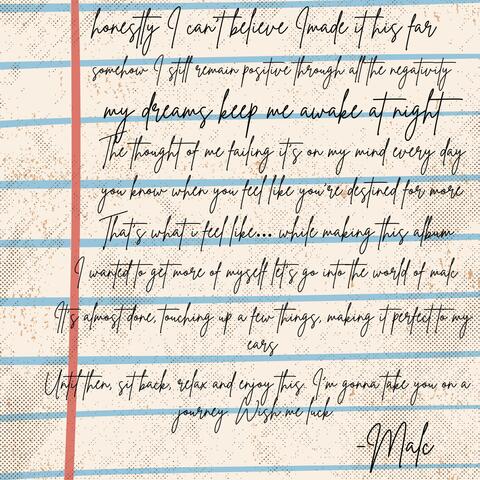 honestly I can't believe I made it this far
somehow I still remain positive through all the negativity
my dreams keep me awake at night
The thought of me failing it's on my mind every day
you know when you feel like you're destined for more
That's what i feel like... while making this album
I wanted to get more of myself let's go into the world of malc
It's almost done, touching up a few things, making it perfect to my
ears
Until then, sit back, relax and enjoy this. I'm gonna take you on a
journey. Wish me luck
-Malc